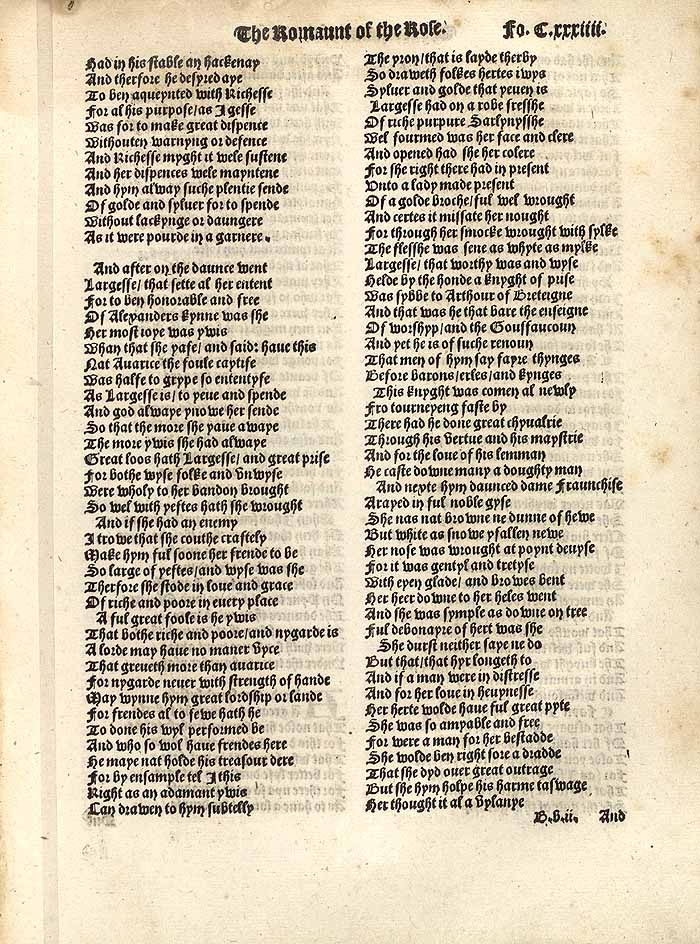 The Romaunt of the Rose. Fo. C.xxxiiii.
Had in his stable an hackenay
And therfore he desyred aye
To ben aqueynted with Richesse
For al his purpose/as I gesse
Was for to make great dispence
Withouten warnyng or defence
And Richesse myght it wele sustene
And her dispences wele mayntene
And hym alway suche plentie sende
Of golde and syluer for to spende
Without lackynge or daungere
As it were pourde in a garnere.
And after on the daunce went
Largesse/ that sette al her entent
For to ben honorable and free
Of Alexanders kynne was she
Her most ioye was ywis
Whan that she yafe/ and said: haue this
Nat Auarice the foule captife
Was halfe to grype so ententyfe
As Largesse is/ to yeue and spende
And god alwaye ynowe her sende
So that the more she yaue awaye
The more ywis she had alwaye
Great loos hath Largesse/ and great prise
For bothe wyse folke and vnwyse
Were wholy to her bandon brought
So wel with yeftes hath she wrought
And if she had an enemy
I trowe that she couthe craftely
Make hym ful soone her frende to be
So large of yeftes/ and wyse was she
Therfore she stode in loue and grace
Of riche and poore in euery place
A ful great foole is he ywis
That bothe riche and poore/and nygarde is
A lorde may haue no maner vyce
That greueth more than auarice
For nygarde neuer with strength of hande
May wynne hym great lordship or lande
For frendes al to fewe hath he
To done his wyl performed be
And who so wol haue frendes here
He maye nat holde his treasour dere
For by ensample tel I this
Right as an adamant ywis
Can drawen to hym subtelly
The yron/that is layde therby
So draweth folkes hertes iwys
Syluer and golde that yeuen is
Largesse had on a robe fresshe
Of riche purpure Sarlynysshe
Wel fourmed was her face and clere
And opened had she her colere
For she right there had in present
Vnto a lady made present
Of a golde broche/ful wel wrought
And certes it missate her nought
For through her smocke wrought with sylke
The flesshe was sene as whyte as mylke
Largesse/ that worthy was and wyse
Helde by the honde a knyght of prise
Was sybbe to Arthour of Breteigne
And that was he that bare the enseigne
Of worshyp/and the Gousfaucoun
And yet he is of suche renoun
That men of hym say fayre thynges
Before barons/erles/and kynges
This knyght was comen al newly
Fro tourneyeng faste by
There had he done great chyualrie
Through his vertue and his maystrie
And for the loue of his lemman
He caste downe many a doughty man
And nexte hym daunced dame Fraunchise
Arayed in ful noble gyse
She nas nat browne ne dunne of hewe
But white as snowe yfallen newe
Her nose was wrought at poynt deuyse
For it was gentyl and tretyse
With eyen glade/ and browes bent
Her heer downe to her heles went
And she was symple as downe on tree
Ful debonayre of hert was she
She durst neither saye ne do
But that/that hyr longeth to
And if a man were in distresse
And for her loue in heuynesse
Her herte wolde haue ful great pyte
She was so amyable and free
For were a man for her bestadde
She wolde ben right sore a dradde
That she dyd ouer great outrage
But she hym holpe his harme taswage
Her thought it al a vylanye
B.b.ii. And